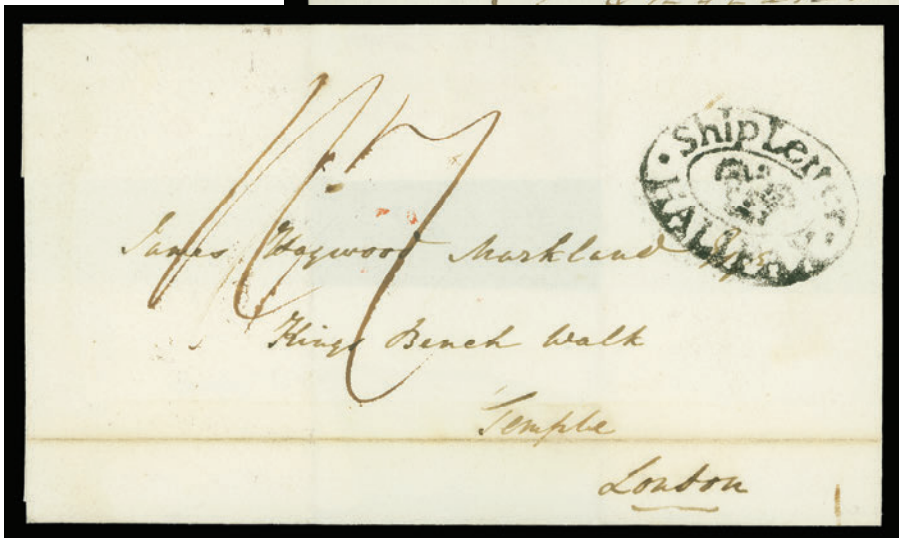 Ship Letter
HALIFAX
James Heywood Markland Esqr
Kings Bench Walk
Temple
London